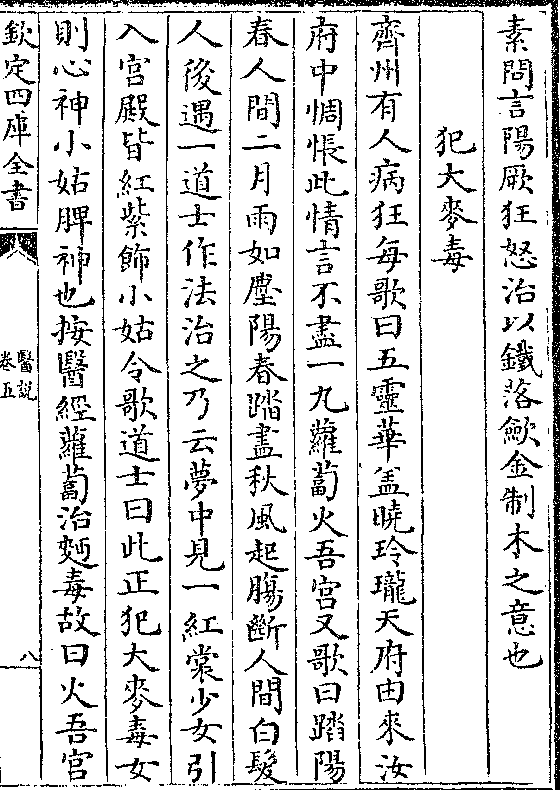 素問言陽厥狂怒治以鐵落歟金制木之意也
犯大麥毒
齊州有人病狂每歌曰五靈華盖曉玲瓏天府由來汝
府中惆悵此情言不盡一九蘿蔔火吾宮又歌曰踏陽
春人間二月雨如塵陽春踏盡秋風起腸斷人間白髮
人後遇一道士作法治之乃云夢中見一紅裳少女引
入宮殿皆紅紫飾小姑令歌道士曰此正犯大麥毒女
則心神小姑脾神也按醫經蘿蔔治麪毒故曰火吾宮
欽定四庫全書
醫說
卷五
八